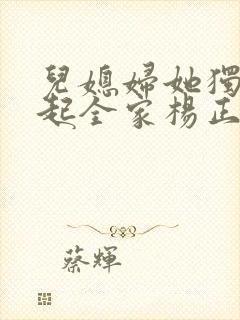 兒媳婦她獨
起全家楊正
蔡輝